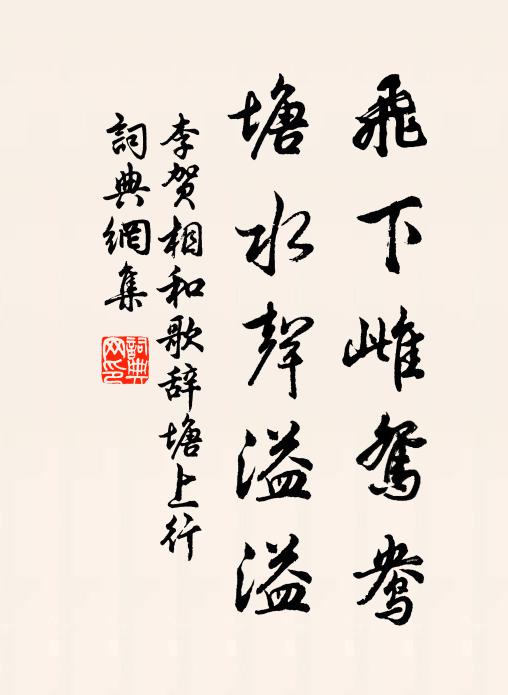 飛下雌鴛鴦
塘水聲溢溢
李賀相和歌辞塘上行
詞典網集
詞典網印